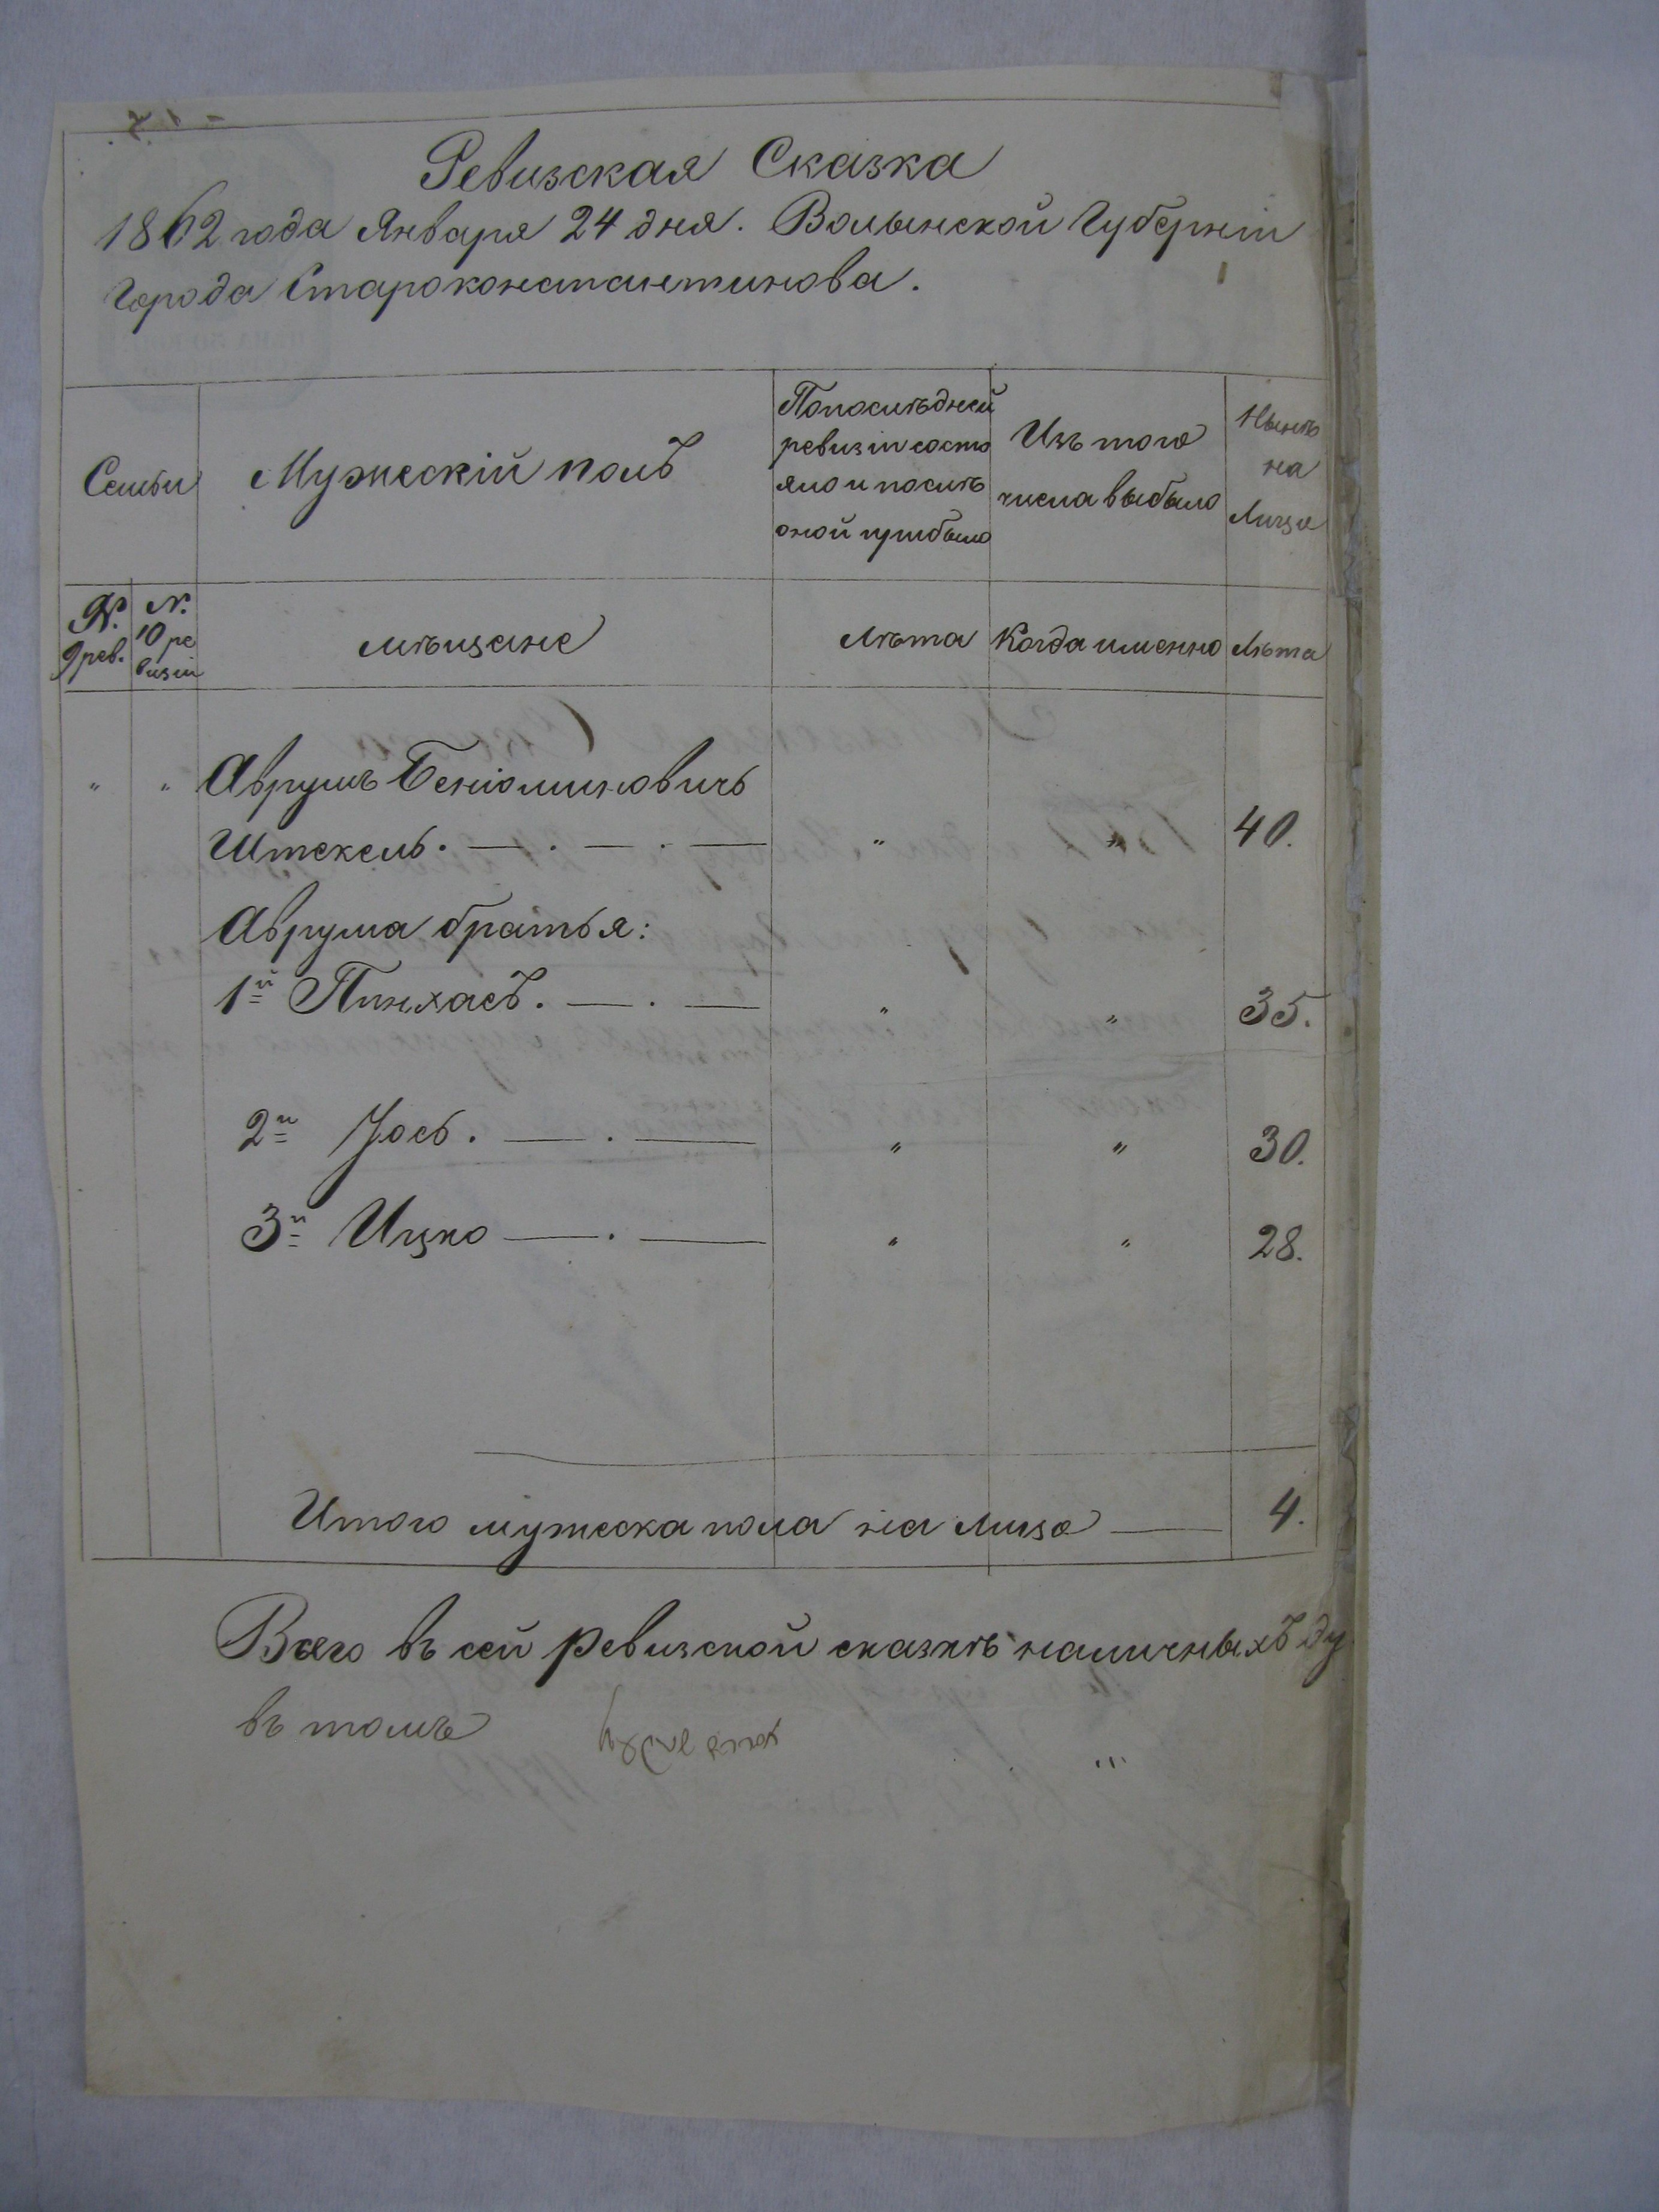 Ревизская Сказка
1862 года Января 24 дня. Волынской Губерніи
Города Староконстантинова.
Семьи
Мужескій полъ
По последней
ревизіи состо
яло и послѣ
оной прибыло
Изъ того
числа выбыло
Нынѣ
на
Лицо
№. 9 рев.
№. 10 ре
визіи
мѣщане
Лѣта
Когда именно
Лѣта
" " Аврумъ Беніоминовичъ
Штекель. — . — . — " " 40.
Аврума братья:
1й Пинхасъ. — . — " " 35.
2й Іось. — . — " " 30.
3й Ицко — . — " " 28.
Итого мужеска пола на лицо — 4.
Всего въ сей ревизской сказкѣ наличныхъ ду
въ томъ